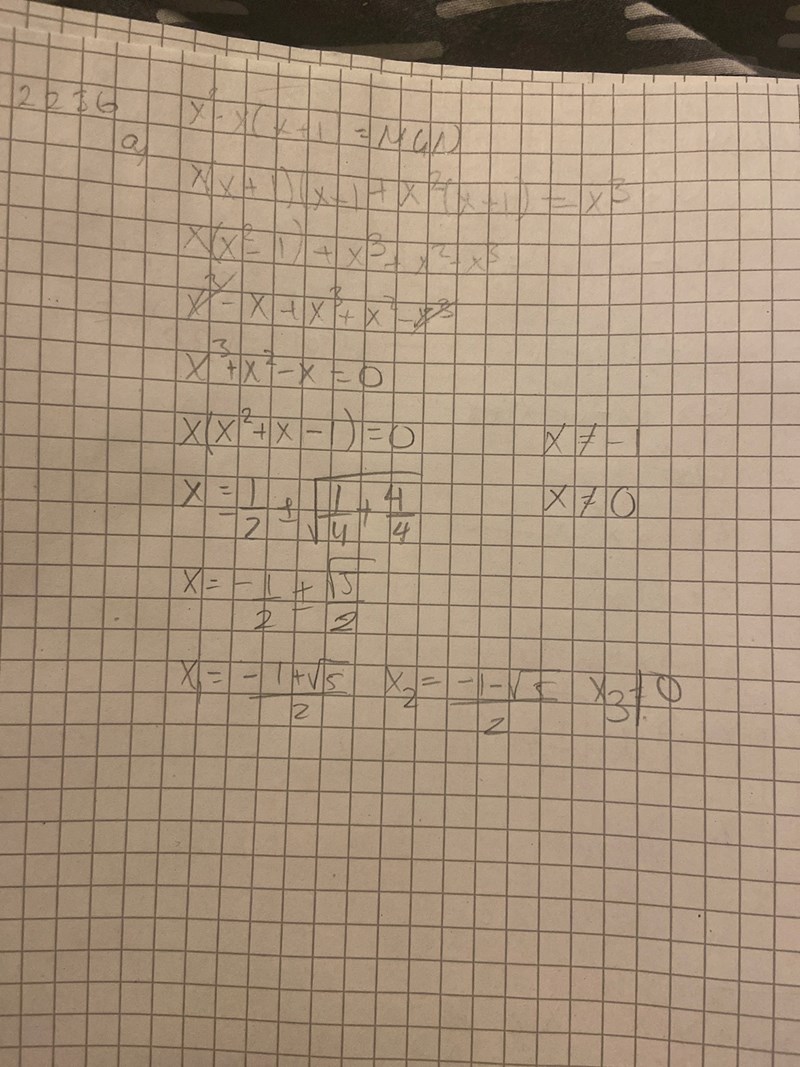 2236
a) x² - x(x+1 = MGN
x(x+1)(x-1 + x²(x+1) = x³
x(x²-1) + x³ + x² - x³
x³ - x + x³ + x² - x³
x³ + x² - x = 0
x(x² + x - 1) = 0 x ≠ -1
x = -1/2 ± √(1/4 + 4/4) x ≠ 0
x = -1/2 ± √5/2
x₁ = (-1+√5)/2 x₂ = (-1-√5)/2 x₃ ≠ 0